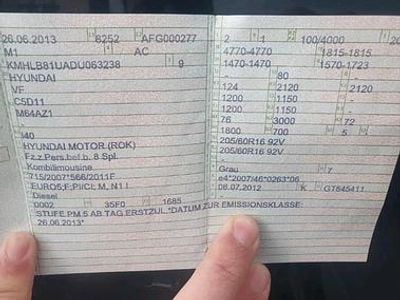 26.06.2013 8252 AFG000277
M1 AC
KMHLB81UADU063238 9
HYUNDAI
VF
C5D11
M64AZ1
-
I40
HYUNDAI MOTOR (ROK)
Fz.z.Pers.bef.b. 8 Spl.
Kombilimousine
715/2007*566/2011F
EURO5;F;PI/CI;M, N1 I
Diesel
0002 35F0 1685
STUFE PM 5 AB TAG ERSTZUL.*DATUM ZUR EMISSIONSKLASSE:
26.06.2013*
2 1 100/4000 20
4770-4770 1815-1815
1470-1470 1570-1723
- 80 -
124 2120 2120
1200 1150 -
1200 1150 -
76 3000 72
1800 700 5 -
205/60R16 92V
205/60R16 92V
-
Grau 7
e4*2007/46*0263*06
06.07.2012 K GT845411